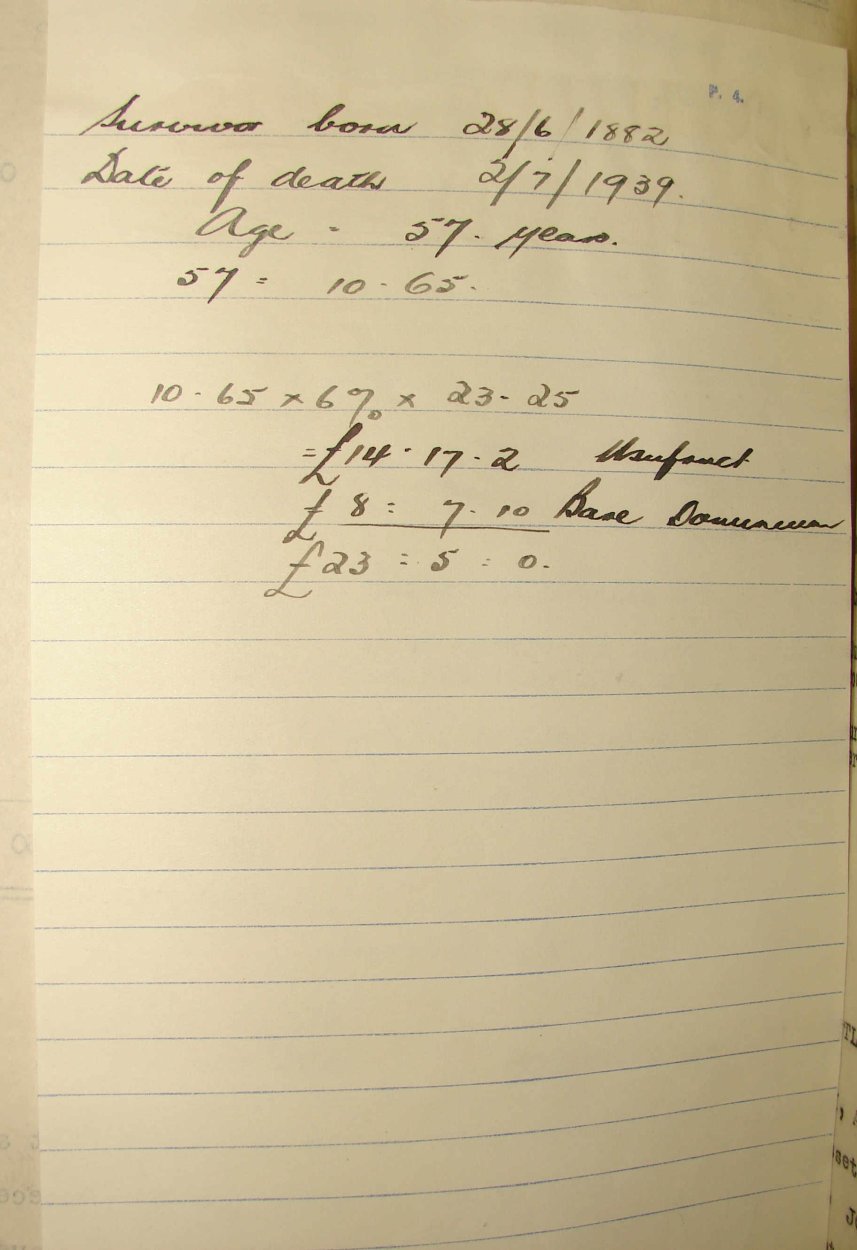 P. 4.
Survivor born 28/6/1882
Date of death 2/7/1939.
Age - 57. years.
57 = 10.65.
10.65 x 6% x 23.25
= £14.17.2 Usufruct
£ 8 : 7.10 Bare Dominium
£23 : 5 : 0.